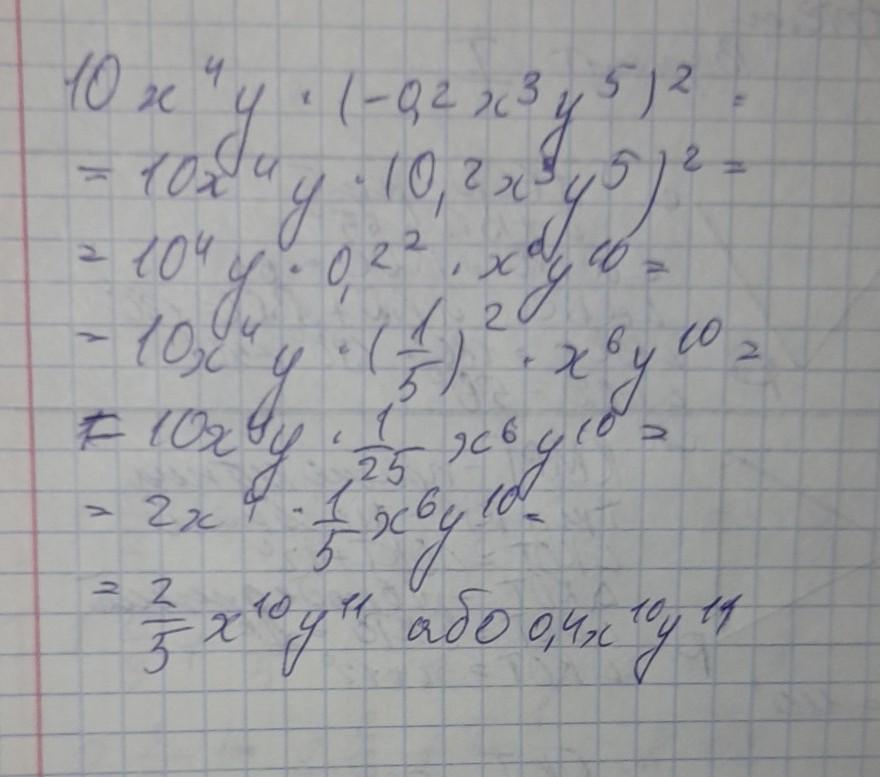 10x⁴y · (-0,2x³y⁵)² =
= 10x⁴y · (0,2x³y⁵)² =
= 10⁴y · 0,2² · x⁶y¹⁰ =
= 10x⁴y · (1/5)² · x⁶y¹⁰ =
= 10x⁴y · 1/25 x⁶y¹⁰ =
= 2x⁴ · 1/5 x⁶y¹⁰ =
= 2/5 x¹⁰y¹¹ або 0,4x¹⁰y¹¹